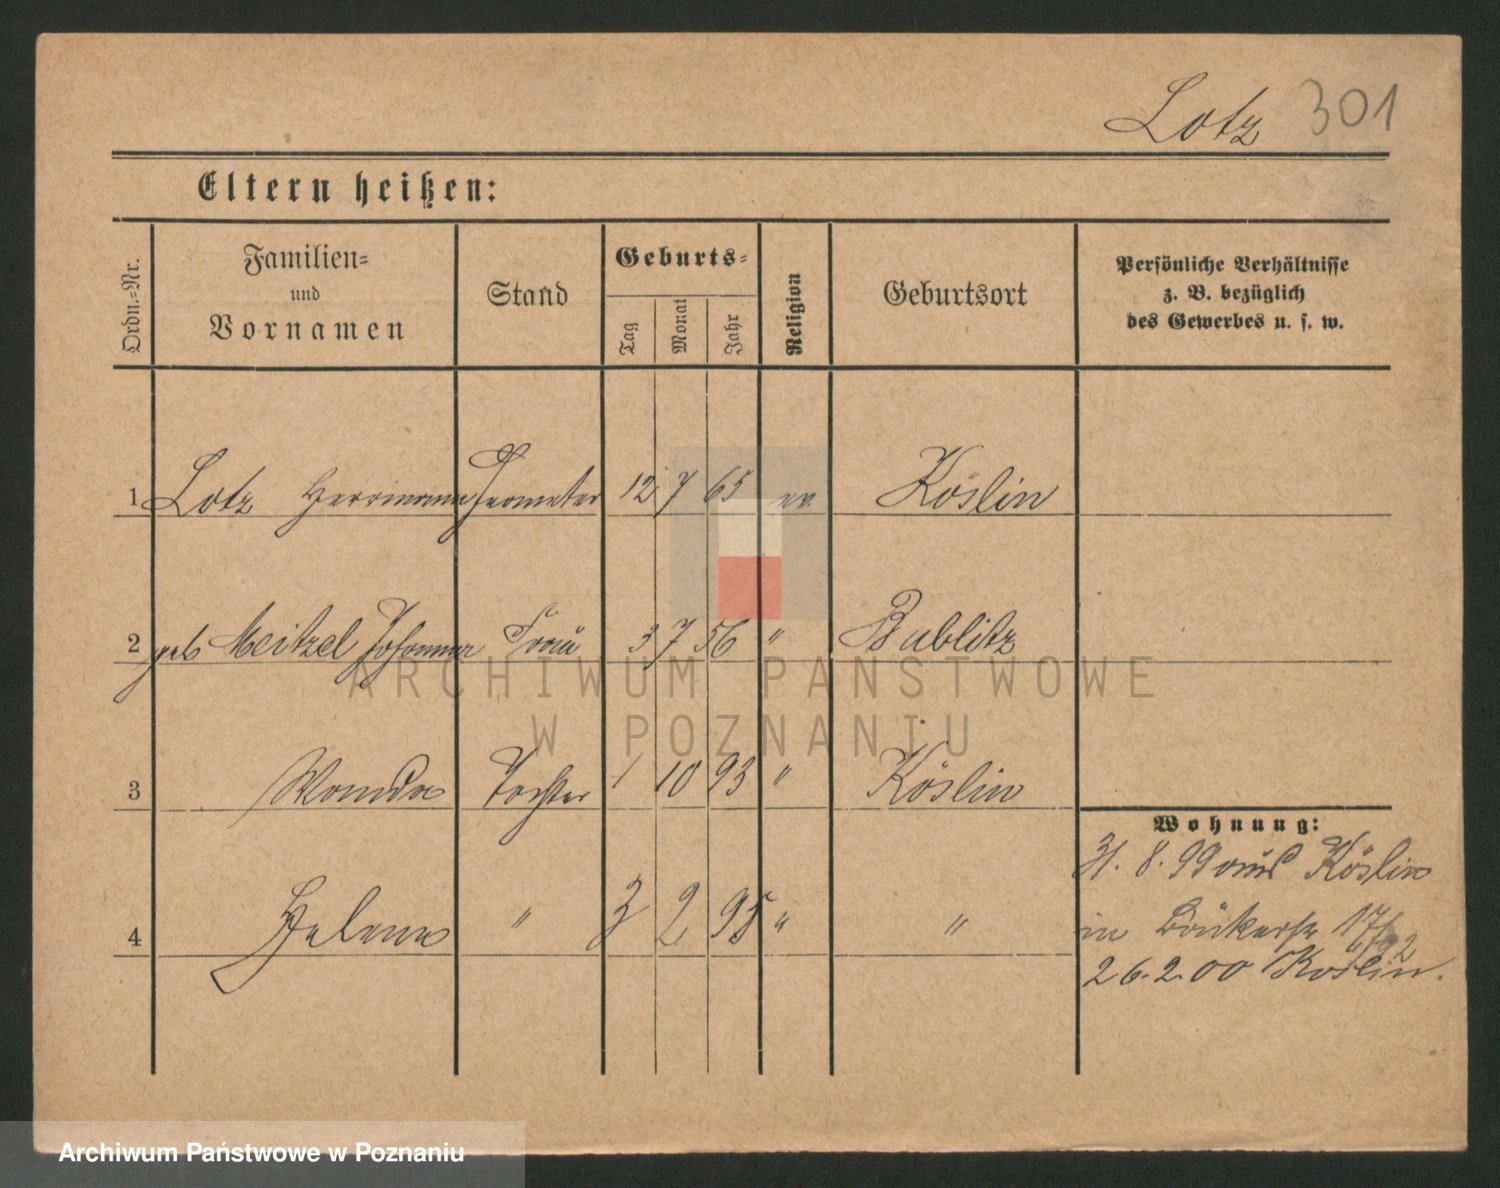 Lotz 301
Eltern heißen:
Ordn.=Nr.
Familien=
und
Vornamen
Stand
Geburts=
Tag
Monat
Jahr
Religion
Geburtsort
Persönliche Verhältnisse
z. B. bezüglich
des Gewerbes u. s. w.
1 Lotz Herrmann Geometer 12 7 65 ev. Köslin
2 geb Meitzel Johanna Frau 3 7 56 " Bublitz
3 Wanda Tochter 1 10 93 " Köslin
4 Helene " 3 2 95 " "
Wohnung:
31. 8. 99 aus Köslin
in 17/
26.2.00 Köslin.
ARCHIWUM PAŃSTWOWE
W POZNANIU
Archiwum Państwowe w Poznaniu